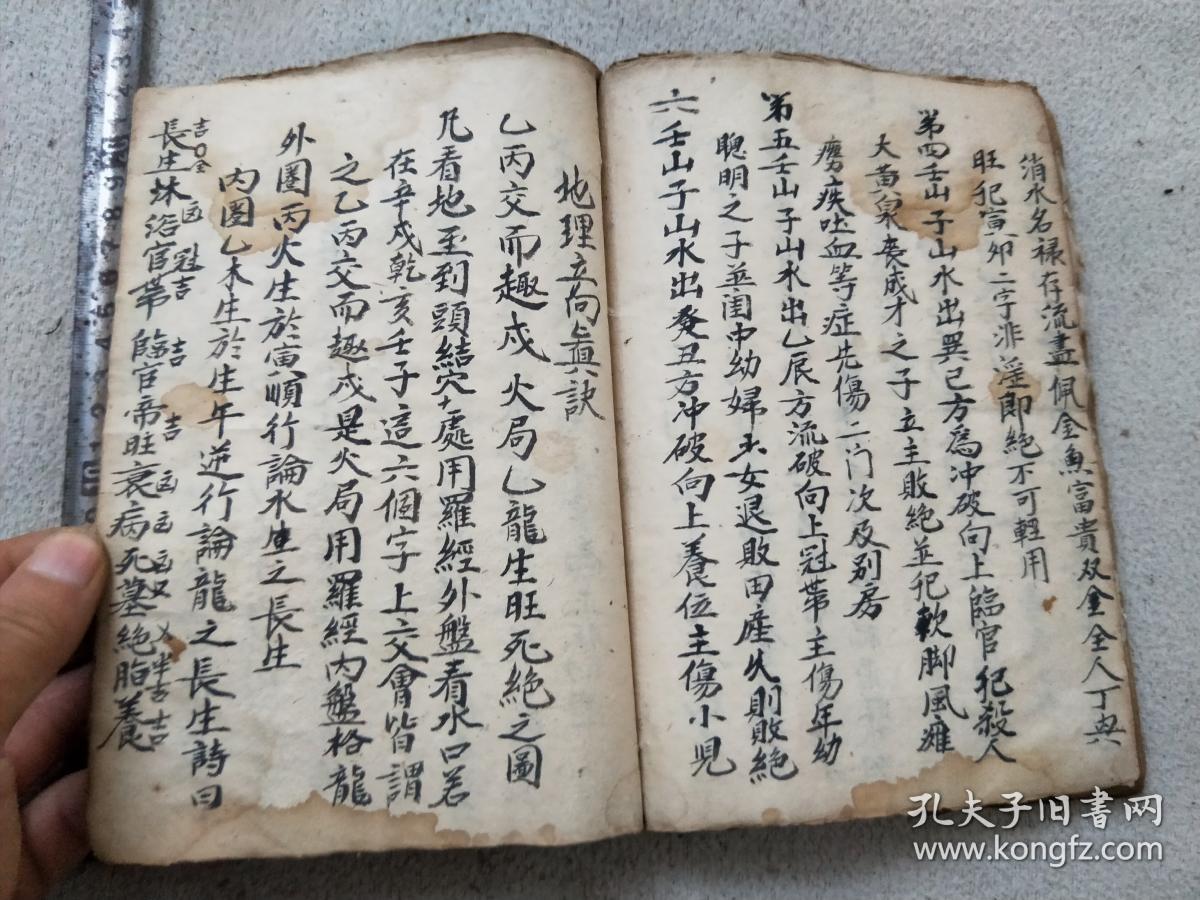 消水名禄存流盡佩金魚富貴双全全人丁興
旺犯寅卯二字非淫即絶不可輕用
第四壬山子山水出巽巳方為冲破向上臨官犯殺人
大黄泉丧成才之子立主敗絶並犯軟脚風难
癆疾吐血等症先傷二门次及别房
第五壬山子山水出乙辰方流破向上冠帶主傷年幼
聰明之子並闺中幼婦玉女退敗田產久則敗絶
六壬山子山水出癸丑方冲破向上養位主傷小児
地理立向真訣
乙丙交而趣戍火局乙龍生旺死絶之圖
凡看地至到頭結穴處用羅經外盤看水口若
在辛戍乾亥壬子這六個字上交會皆謂
之乙丙交而趣戍是火局用羅經内盤格龍
外圈丙火生於寅順行論水生之長生
内圈乙木生於生午逆行論龍之長生詩曰
長生沐浴官帶臨官帝旺衰病死墓絶胎養
吉 凶 冠吉 吉 吉 凶 凶 凶 又 半吉 吉
孔夫子旧书网
www.kongfz.com